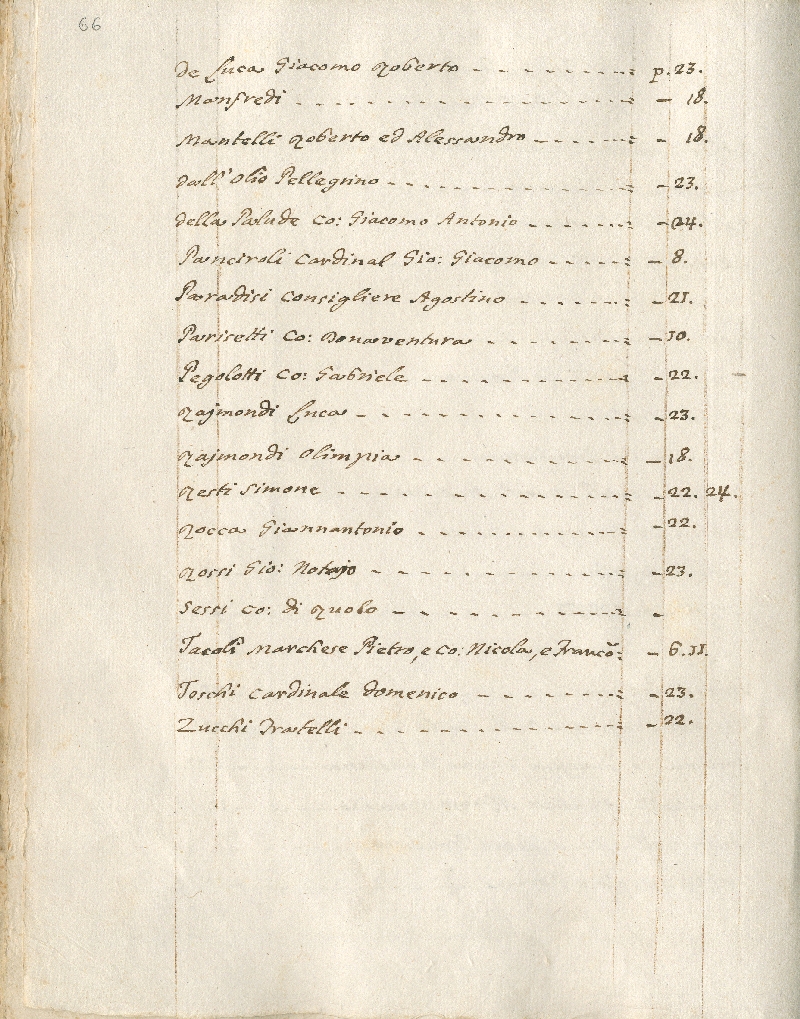 66
de Luca Giacomo Roberto - - - - - - - - - : p. 23.
Manfredi - - - - - - - - - - - - - - - - : - 18.
Mantelli Roberto ed Alessandro - - - - - - : - 18.
dall' Olio Pellegrino - - - - - - - - - - - - : - 23.
della Palude Co: Giacomo Antonio - - - - - - : - 24.
Panciroli Cardinal Gio: Giacomo - - - - - : - 8.
Paradisi Consigliere Agostino - - - - - - - : - 21.
Parisetti Co: Bonaventura - - - - - - - - : - 10.
Pegolotti Co: Gabriele - - - - - - - - - - - - 22.
Rajmondi Luca - - - - - - - - - - - - - : - 23.
Rajmondi Olimpia - - - - - - - - - - - : - 18.
Resti Simone - - - - - - - - - - - - - - : - 22. 24.
Rocca Giannantonio - - - - - - - - - - - : - 22.
Rossi Gio: Notajo - - - - - - - - - - - - : - 23.
Sessi Co: di Rolo - - - - - - - - - - - - : -
Tacoli Marchese Pietro, e Co: Nicola, e Franco: - 6. 11.
Toschi Cardinale Domenico - - - - - - - - : - 23.
Zucchi Fratelli - - - - - - - - - - - - - : - 22.